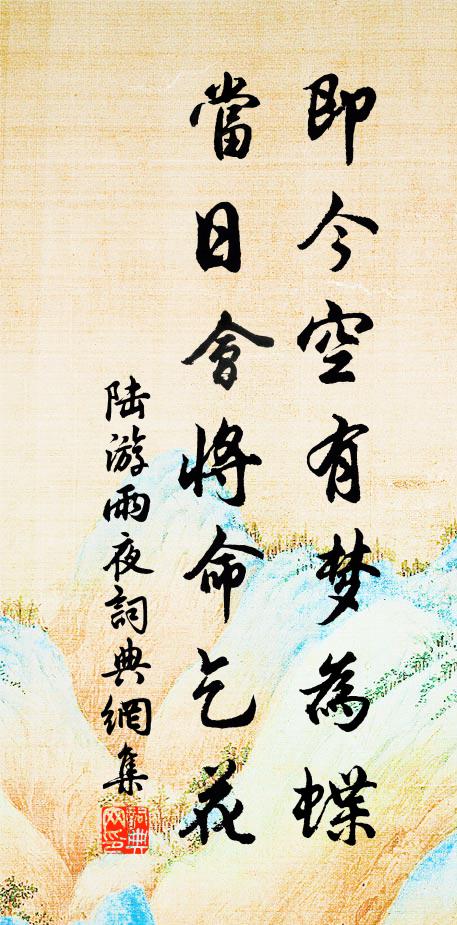 即今空有梦為蝶
當日會將命乞花
陆游雨夜詞典網集
詞典